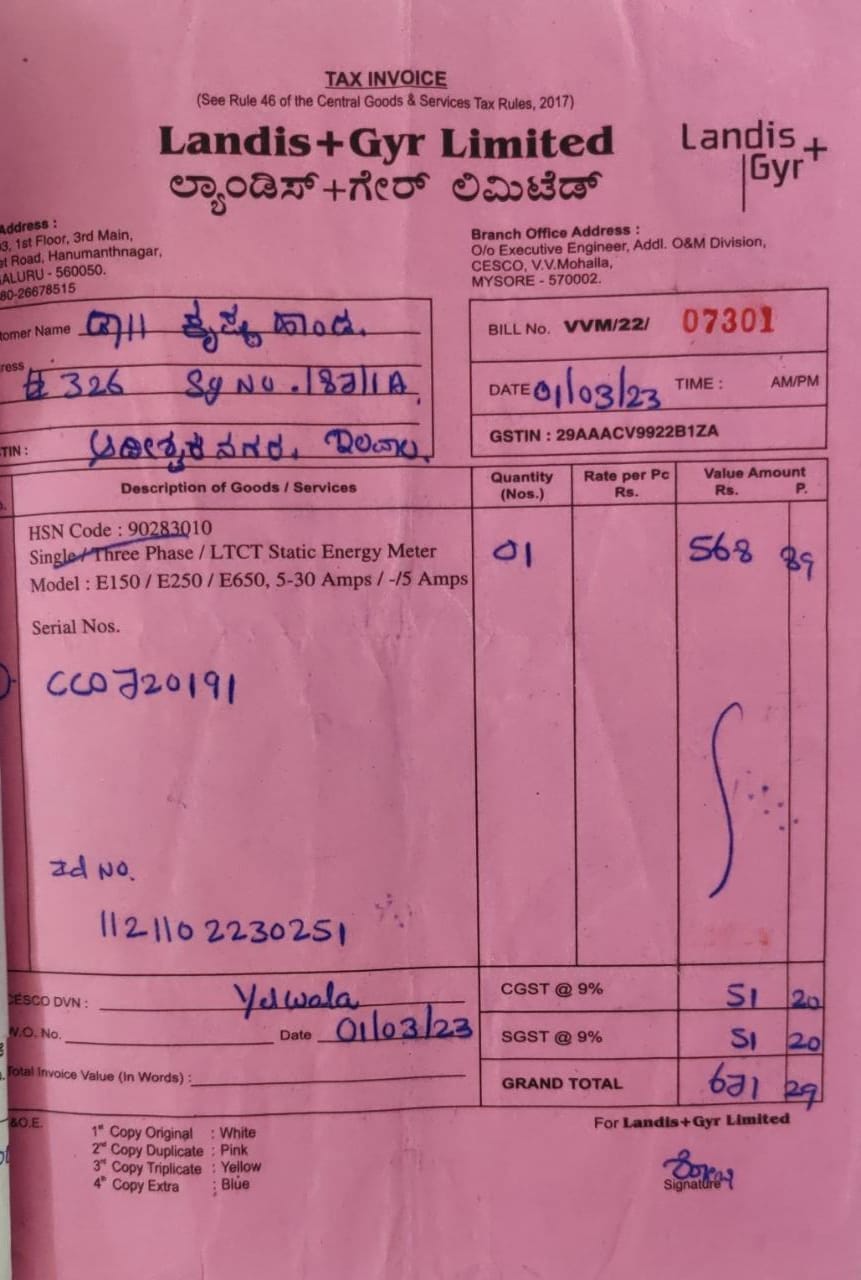 TAX INVOICE
(See Rule 46 of the Central Goods & Services Tax Rules, 2017)
Landis+Gyr Limited
ಲ್ಯಾಂಡಿಸ್+ಗೇರ್ ಲಿಮಿಟೆಡ್
Landis+
Gyr
Address :
3, 1st Floor, 3rd Main,
t Road, Hanumanthnagar,
ALURU - 560050.
80-26678515
Branch Office Address :
O/o Executive Engineer, Addl. O&M Division,
CESCO, V.V.Mohalla,
MYSORE - 570002.
tomer Name
ress # 326 Sy No. 183/1A
TIN :
BILL No. VVM/22/ 07301
DATE 01/03/23 TIME : AM/PM
GSTIN : 29AAACV9922B1ZA
Description of Goods / Services Quantity (Nos.) Rate per Pc Rs. Value Amount Rs. P.
HSN Code : 90283010
Single / Three Phase / LTCT Static Energy Meter 01 568 89
Model : E150 / E250 / E650, 5-30 Amps / -/5 Amps
Serial Nos.
CC0720191
Id No.
112110 2230251
CESCO DVN : Yelwala
W.O. No. Date 01/03/23
Total Invoice Value (In Words) :
CGST @ 9% 51 20
SGST @ 9% 51 20
GRAND TOTAL 671 29
&O.E.
1st Copy Original : White
2nd Copy Duplicate : Pink
3rd Copy Triplicate : Yellow
4th Copy Extra : Blue
For Landis+Gyr Limited
Signature